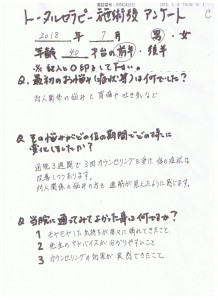 トータルセラピー施術後アンケート
2018 年 7 月 男・女
年齢 40 才台の前半・後半
※記入と○印をして下さい。
Q. 最初のお悩み(症状等)は何でしたか?
対人関係の悩みと胃痛や吐き気など
Q. その悩みがどの位の期間でどの様に
変化しましたか?
通院3週間で3回カウンセリングを受け、体の症状は
改善しつつあります。
対人関係の悩みの方も進展が見えたように感じます。
Q. 当院に通ってみてよかった事は何ですか?
1 モヤモヤした気持ちが徐々に晴れてきたこと
2 先生のアドバイスが分かりやすいこと
3 カウンセリングの効果が実感できたこと。